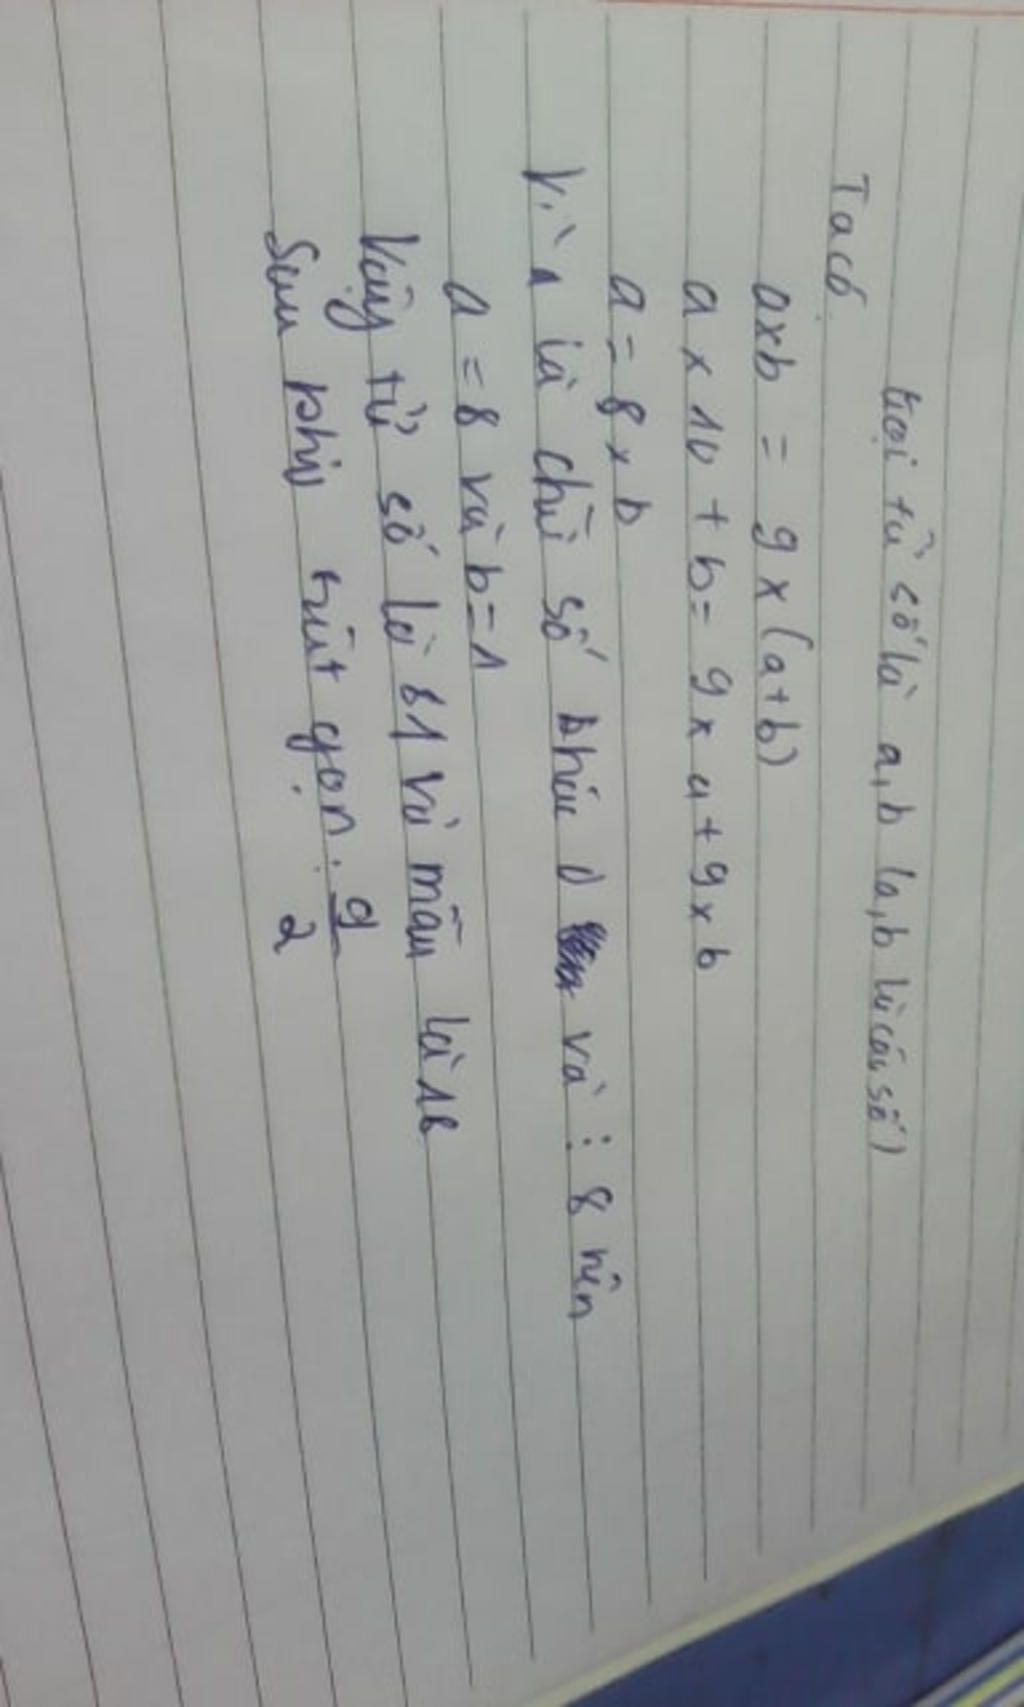 Gọi tử số là a,b (a,b là các số)
Ta có
axb = 9 x (a+b)
a x 10 + b = 9 x a + 9 x b
a = 8 x b
Vì 1 là chữ số khác 0 và : 8 nên
a = 8 và b = 1
Vậy tử số là 81 và mẫu là 18
Sau khi rút gọn : 9/2